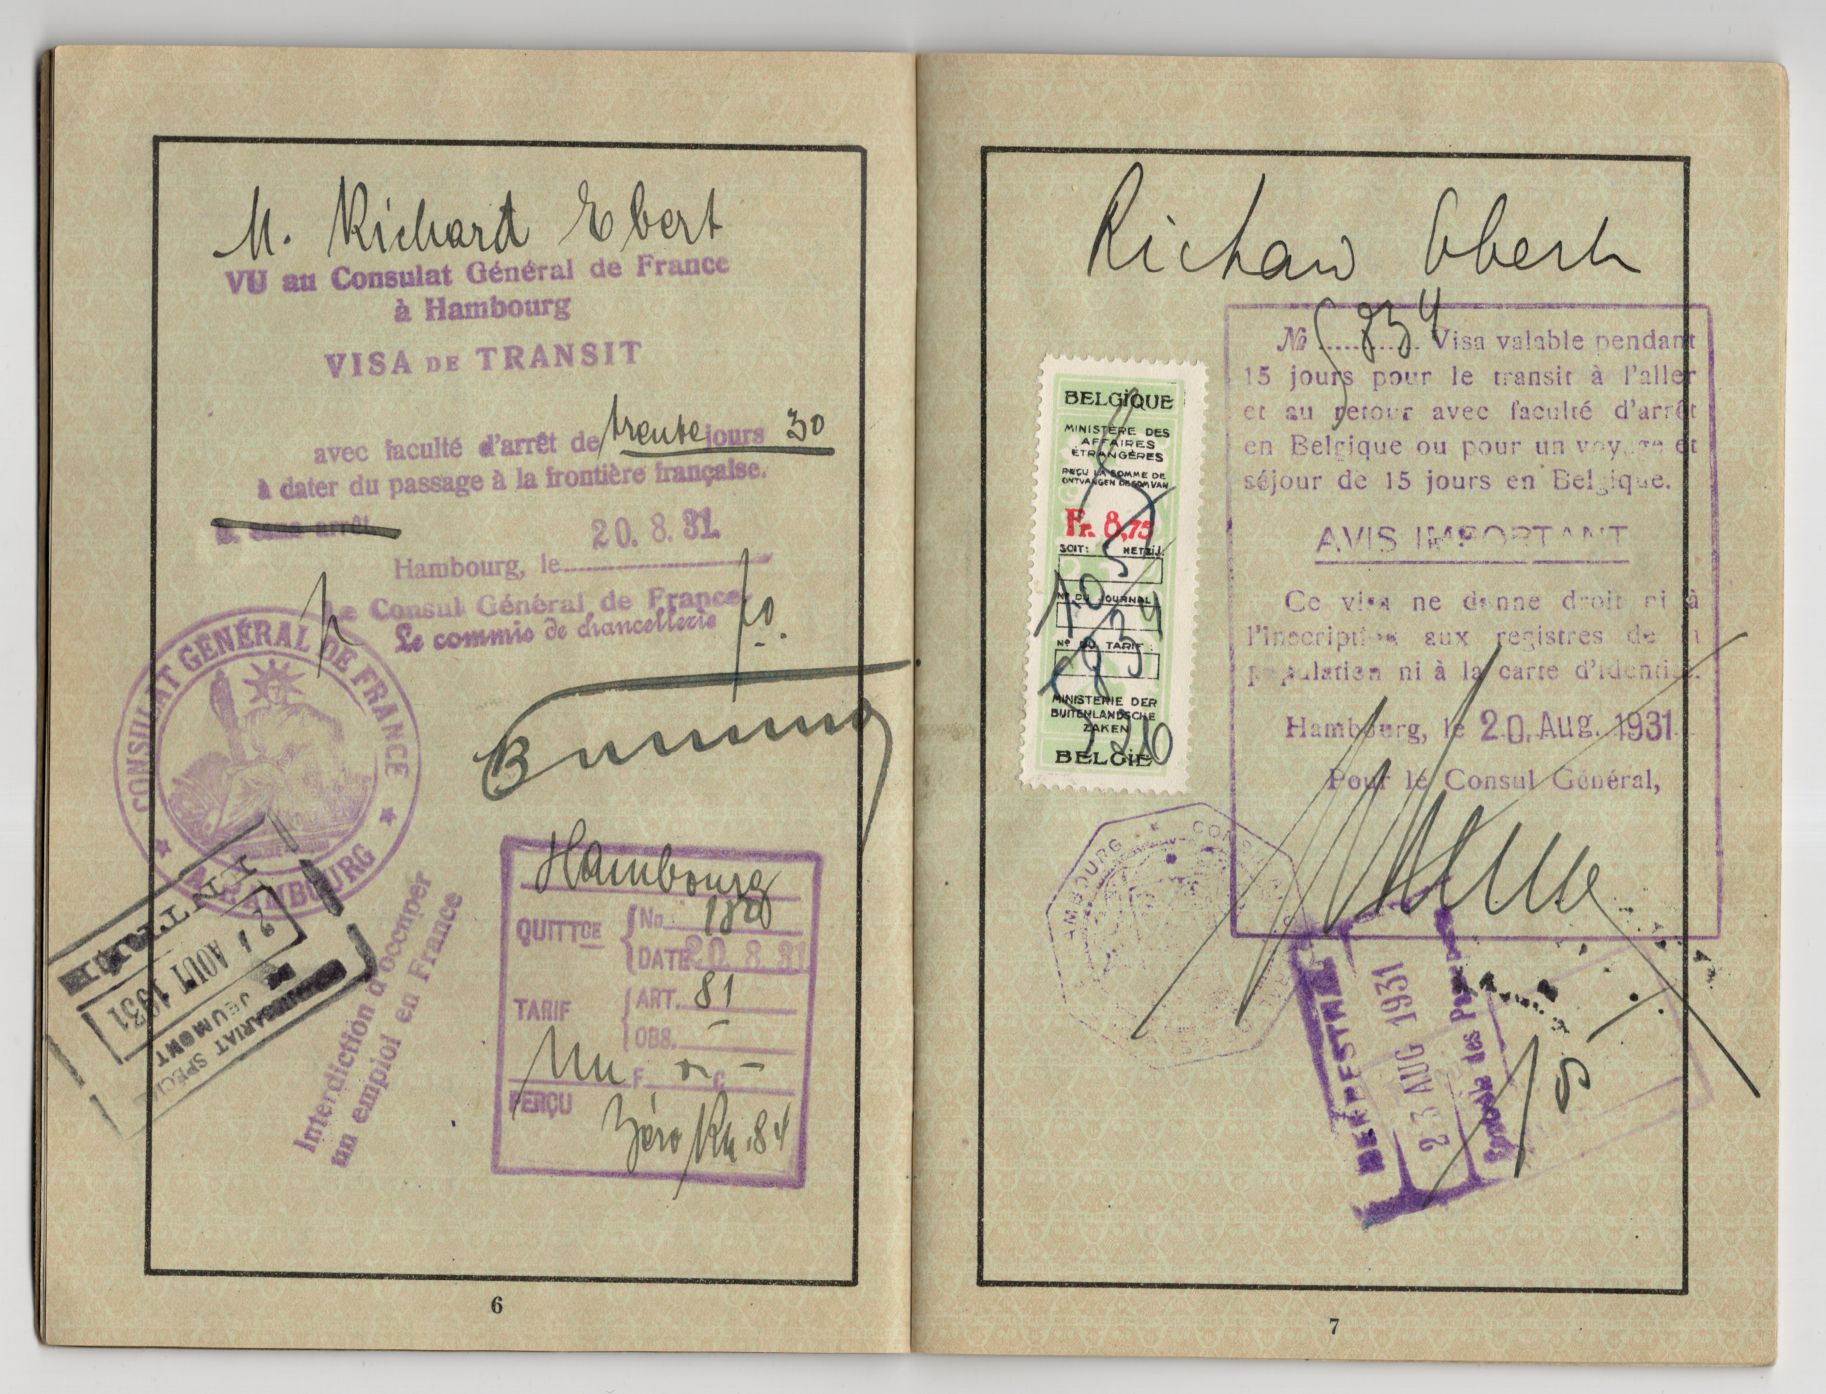 M. Richard Ebert
VU au Consulat Général de France
à Hambourg
VISA DE TRANSIT
avec faculté d'arrêt de trente jours 30
à dater du passage à la frontière française.
sans arrêt
20. 8. 31.
Hambourg, le
Le Consul Général de France
Le commis de chancellerie
CONSULAT GÉNÉRAL DE FRANCE
★ HAMBOURG ★
21 AOUT 1931
COMMISSARIAT SPECIAL
JEUMONT
Interdiction d'occuper
un emploi en France
Hambourg
QUITTCE
No.
DATE 20 8 31
TARIF
ART. 81
OBS. -
Un F. C.
PERÇU
Zéro Rm. 84
6
Richard Ebert
No 5834 Visa valable pendant
15 jours pour le transit à l'aller
et au retour avec faculté d'arrêt
en Belgique ou pour un voyage et
séjour de 15 jours en Belgique.
AVIS IMPORTANT
Ce visa ne donne droit ni à
l'inscription aux registres de la
population ni à la carte d'identité.
Hambourg, le 20. Aug. 1931
Pour le Consul Général,
BELGIQUE
MINISTÈRE DES
AFFAIRES
ÉTRANGÈRES
REÇU LA SOMME DE
ONTVANGEN DE SOM VAN
Fr. 8,75
SOIT: HETZIJ:
No DU JOURNAL
5834
No DU TARIF
MINISTERIE DER
BUITENLANDSCHE
ZAKEN
BELGIË
HAMBOURG
HERBESTHAL
23 AUG 1931